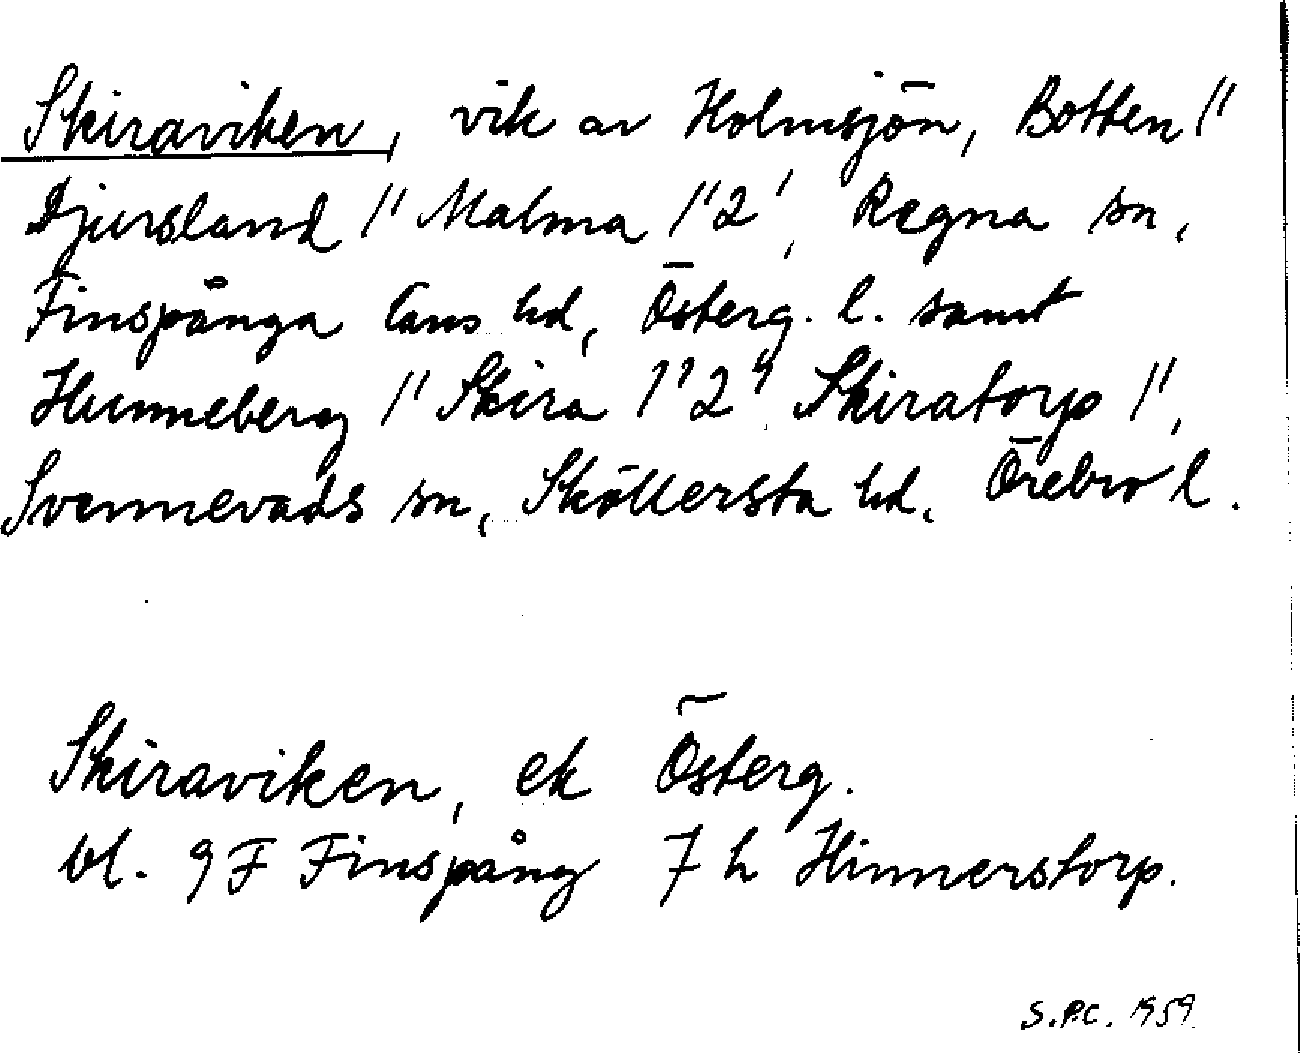 Skiraviken, vik av Holmsjön, Botten 1¹
Djursland 1¹ Malma 1¹2¹, Regna sn,
Finspånga läns hd, Österg. l. samt
Hunneberg 1¹ Skira 1¹2¹ Skiratorp 1¹,
Svennevads sn, Sköllersta hd, Örebro l.
Skiraviken, ek Österg.
bl. 9F Finspång 7h Hinnerstorp.
S.P.C. 1959